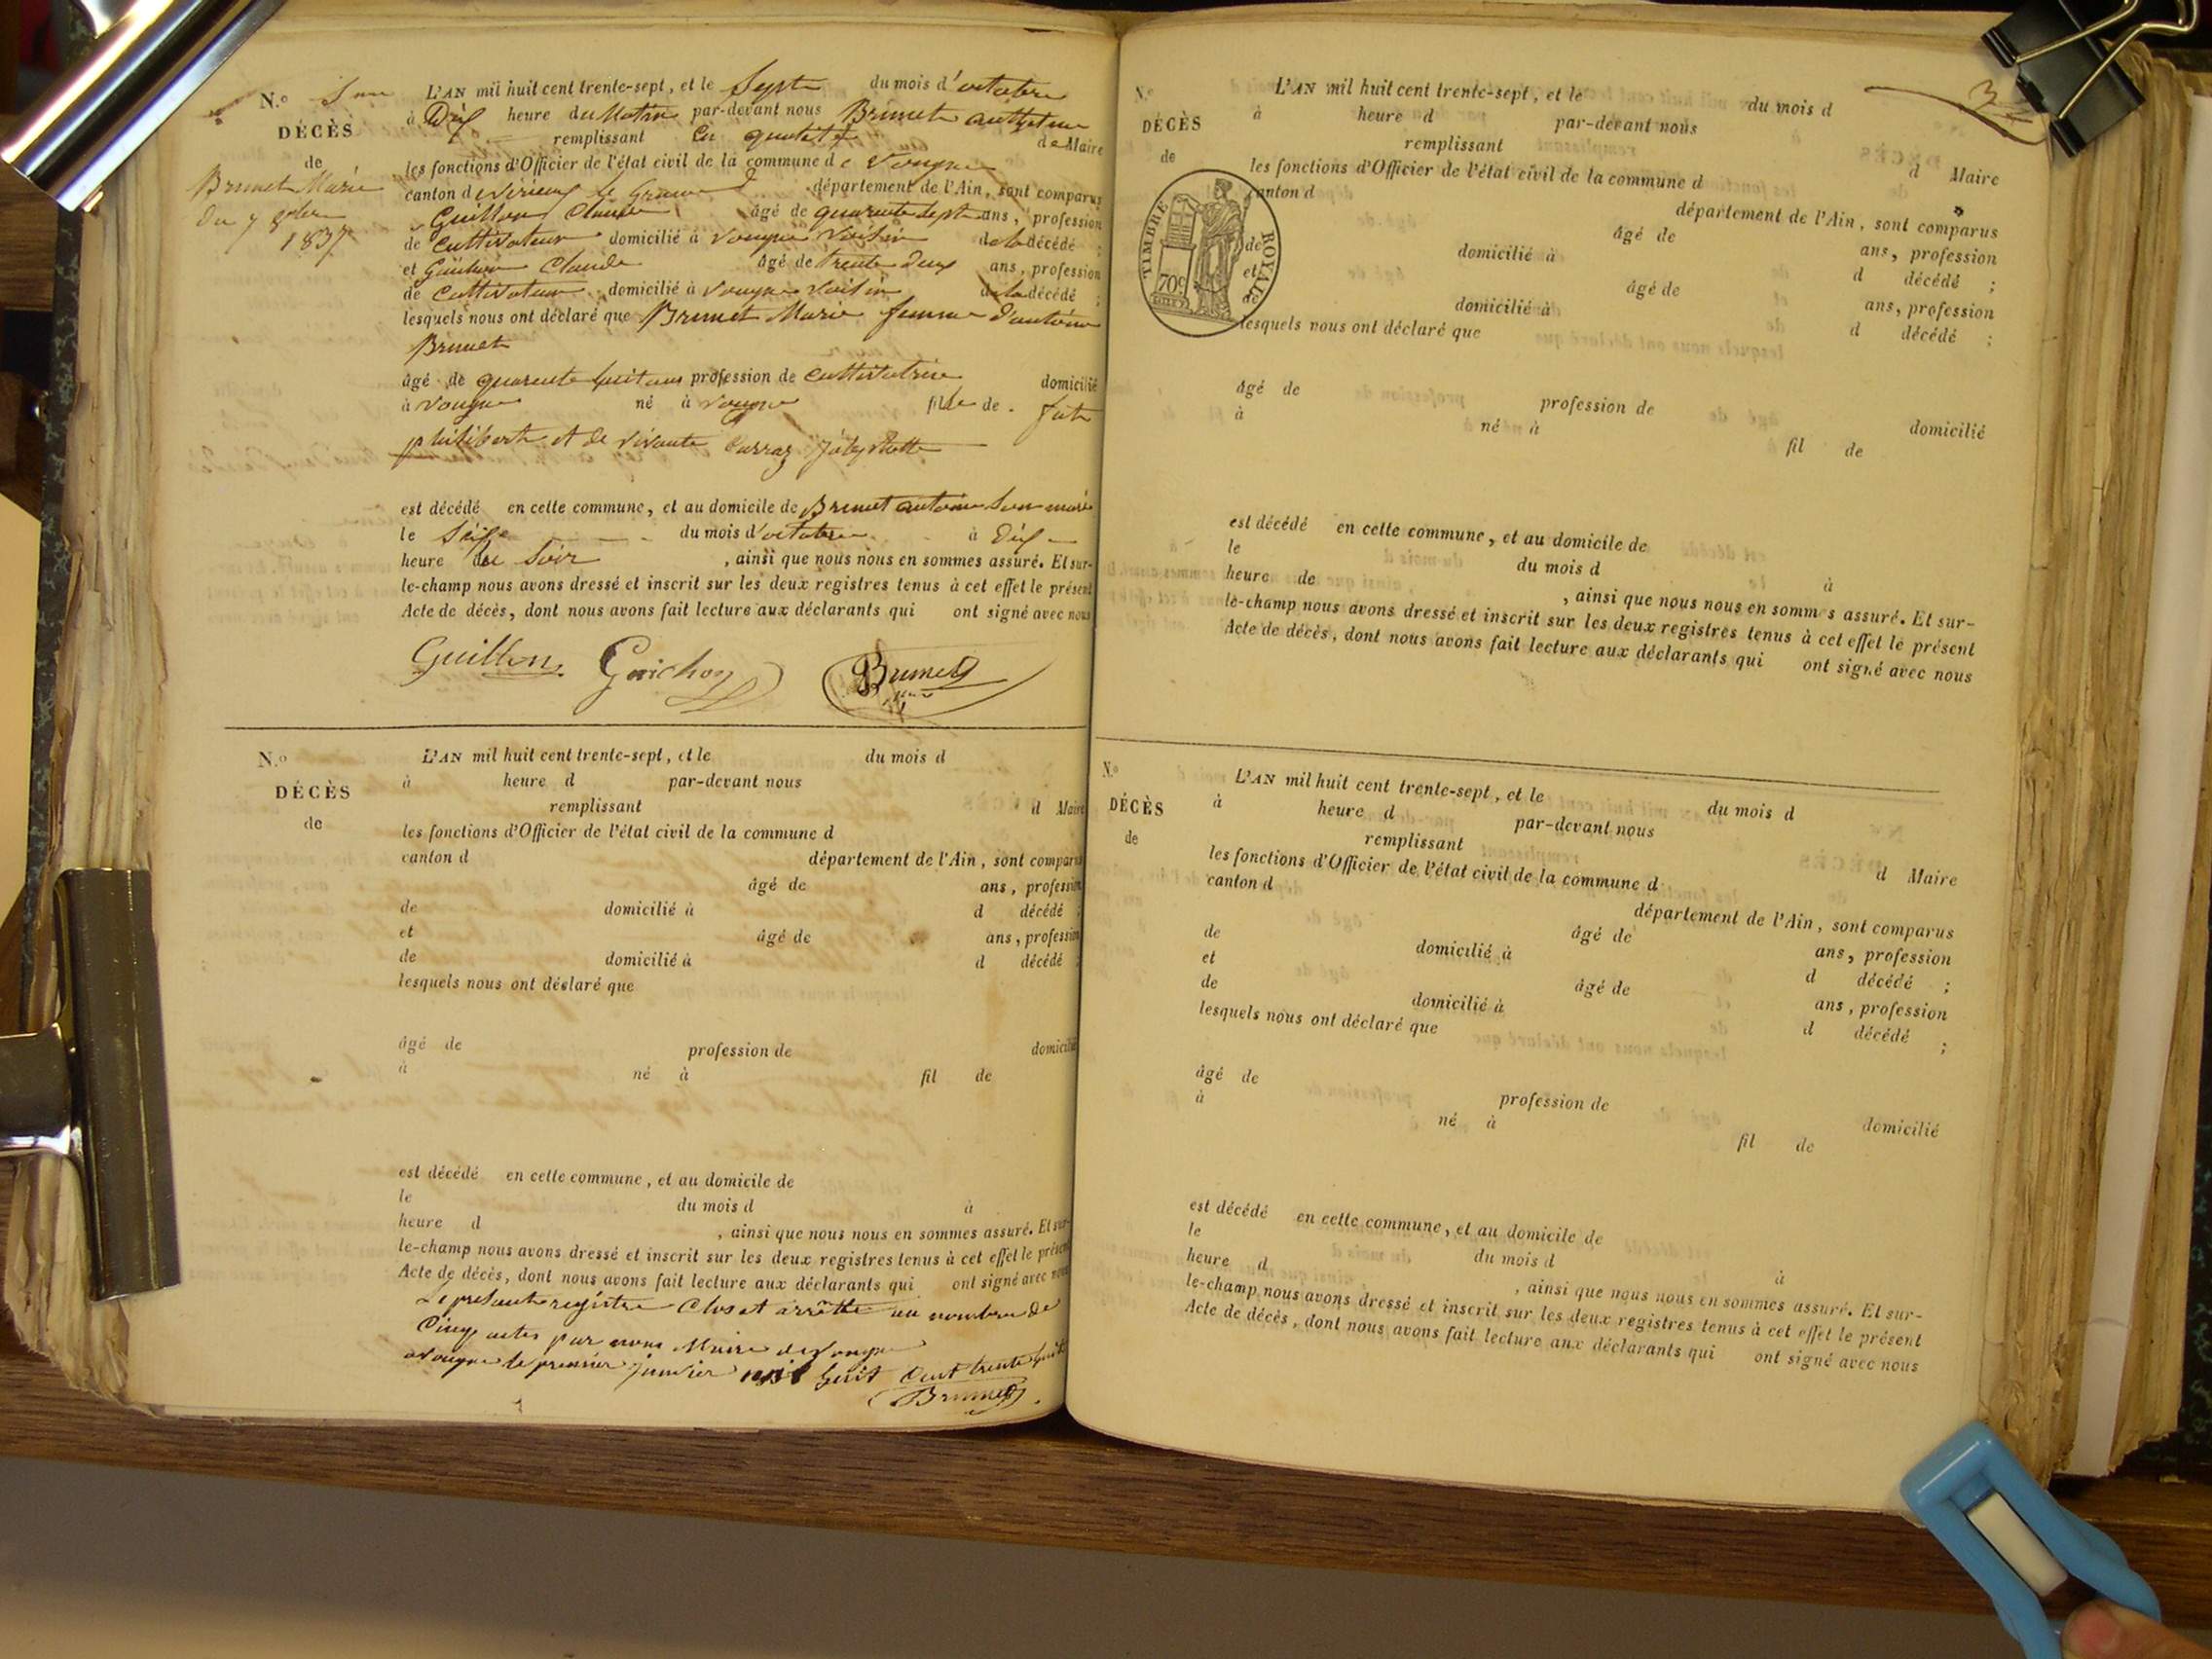 N.o 5me
DÉCÈS
de
Brunet Marie
du 7 8bre
1837
L'AN mil huit cent trente-sept, et le sept du mois d'octobre
à Dix heure du Matin par-devant nous Brunet
remplissant en qualité de Maire
les fonctions d'Officier de l'état civil de la commune de Vongne
canton de virieux le Grand département de l'Ain, sont comparus
Guillon Claude âgé de quarente sept ans, profession
de cultivateur domicilié à vongne voisin de la décédé ;
et Guichon Claude âgé de trente deux ans, profession
de cultivateur domicilié à vongne voisin de la décédé ;
lesquels nous ont déclaré que Brunet Marie femme d'antoine
Brunet
âgé de quarente huit ans profession de cultivatrice domicilié
à vongne né à vongne fille de . fut
philibert et de vivante
est décédé en cette commune, et au domicile de Brunet antoine son marie
le six du mois d'octobre à dix
heure du soir , ainsi que nous nous en sommes assuré. Et sur-
le-champ nous avons dressé et inscrit sur les deux registres tenus à cet effet le présent
Acte de décès, dont nous avons fait lecture aux déclarants qui ont signé avec nous
Guillon Guichon Brunet
N.o
DÉCÈS
de
L'AN mil huit cent trente-sept, et le du mois d
à heure d par-devant nous
remplissant d Maire
les fonctions d'Officier de l'état civil de la commune d
canton d département de l'Ain, sont comparus
âgé de ans, profession
de domicilié à d décédé ;
et âgé de ans, profession
de domicilié à d décédé ;
lesquels nous ont déclaré que
âgé de profession de domicilié
à né à fil de
est décédé en cette commune, et au domicile de
le du mois d à
heure d , ainsi que nous nous en sommes assuré. Et sur-
le-champ nous avons dressé et inscrit sur les deux registres tenus à cet effet le présent
Acte de décès, dont nous avons fait lecture aux déclarants qui ont signé avec nous
Le present registre Clos et arrêtté au nombre de
Cinq actes par nous Maire de Vongne
a vongne le premier janvier mil huit Cent trente huit
Brunet
3
N.o
DÉCÈS
de
TIMBRE ROYAL
70c
L'AN mil huit cent trente-sept, et le du mois d
à heure d par-devant nous
remplissant d Maire
les fonctions d'Officier de l'état civil de la commune d
canton d département de l'Ain, sont comparus
âgé de ans, profession
de domicilié à d décédé ;
et âgé de ans, profession
domicilié à d décédé ;
lesquels nous ont déclaré que
âgé de profession de domicilié
à né à fil de
est décédé en cette commune, et au domicile de
le du mois d à
heure de , ainsi que nous nous en somm s assuré. Et sur-
le-champ nous avons dressé et inscrit sur les deux registres tenus à cet effet le présent
Acte de décès, dont nous avons fait lecture aux déclarants qui ont signé avec nous
N.o
DÉCÈS
de
L'AN mil huit cent trente-sept, et le du mois d
à heure d par-devant nous
remplissant d Maire
les fonctions d'Officier de l'état civil de la commune d
canton d département de l'Ain, sont comparus
âgé de ans, profession
de domicilié à d décédé ;
et âgé de ans, profession
de domicilié à d décédé ;
lesquels nous ont déclaré que
âgé de profession de domicilié
à né à fil de
est décédé en cette commune, et au domicile de
le du mois d à
heure d , ainsi que nous nous en sommes assuré. Et sur-
le-champ nous avons dressé et inscrit sur les deux registres tenus à cet effet le présent
Acte de décès, dont nous avons fait lecture aux déclarants qui ont signé avec nous